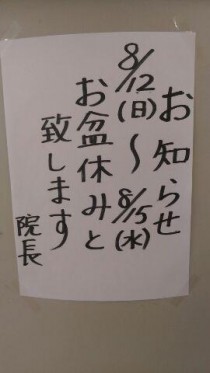 お知らせ
8/12(日)〜8/15(水)
お盆休みと
致します
院長